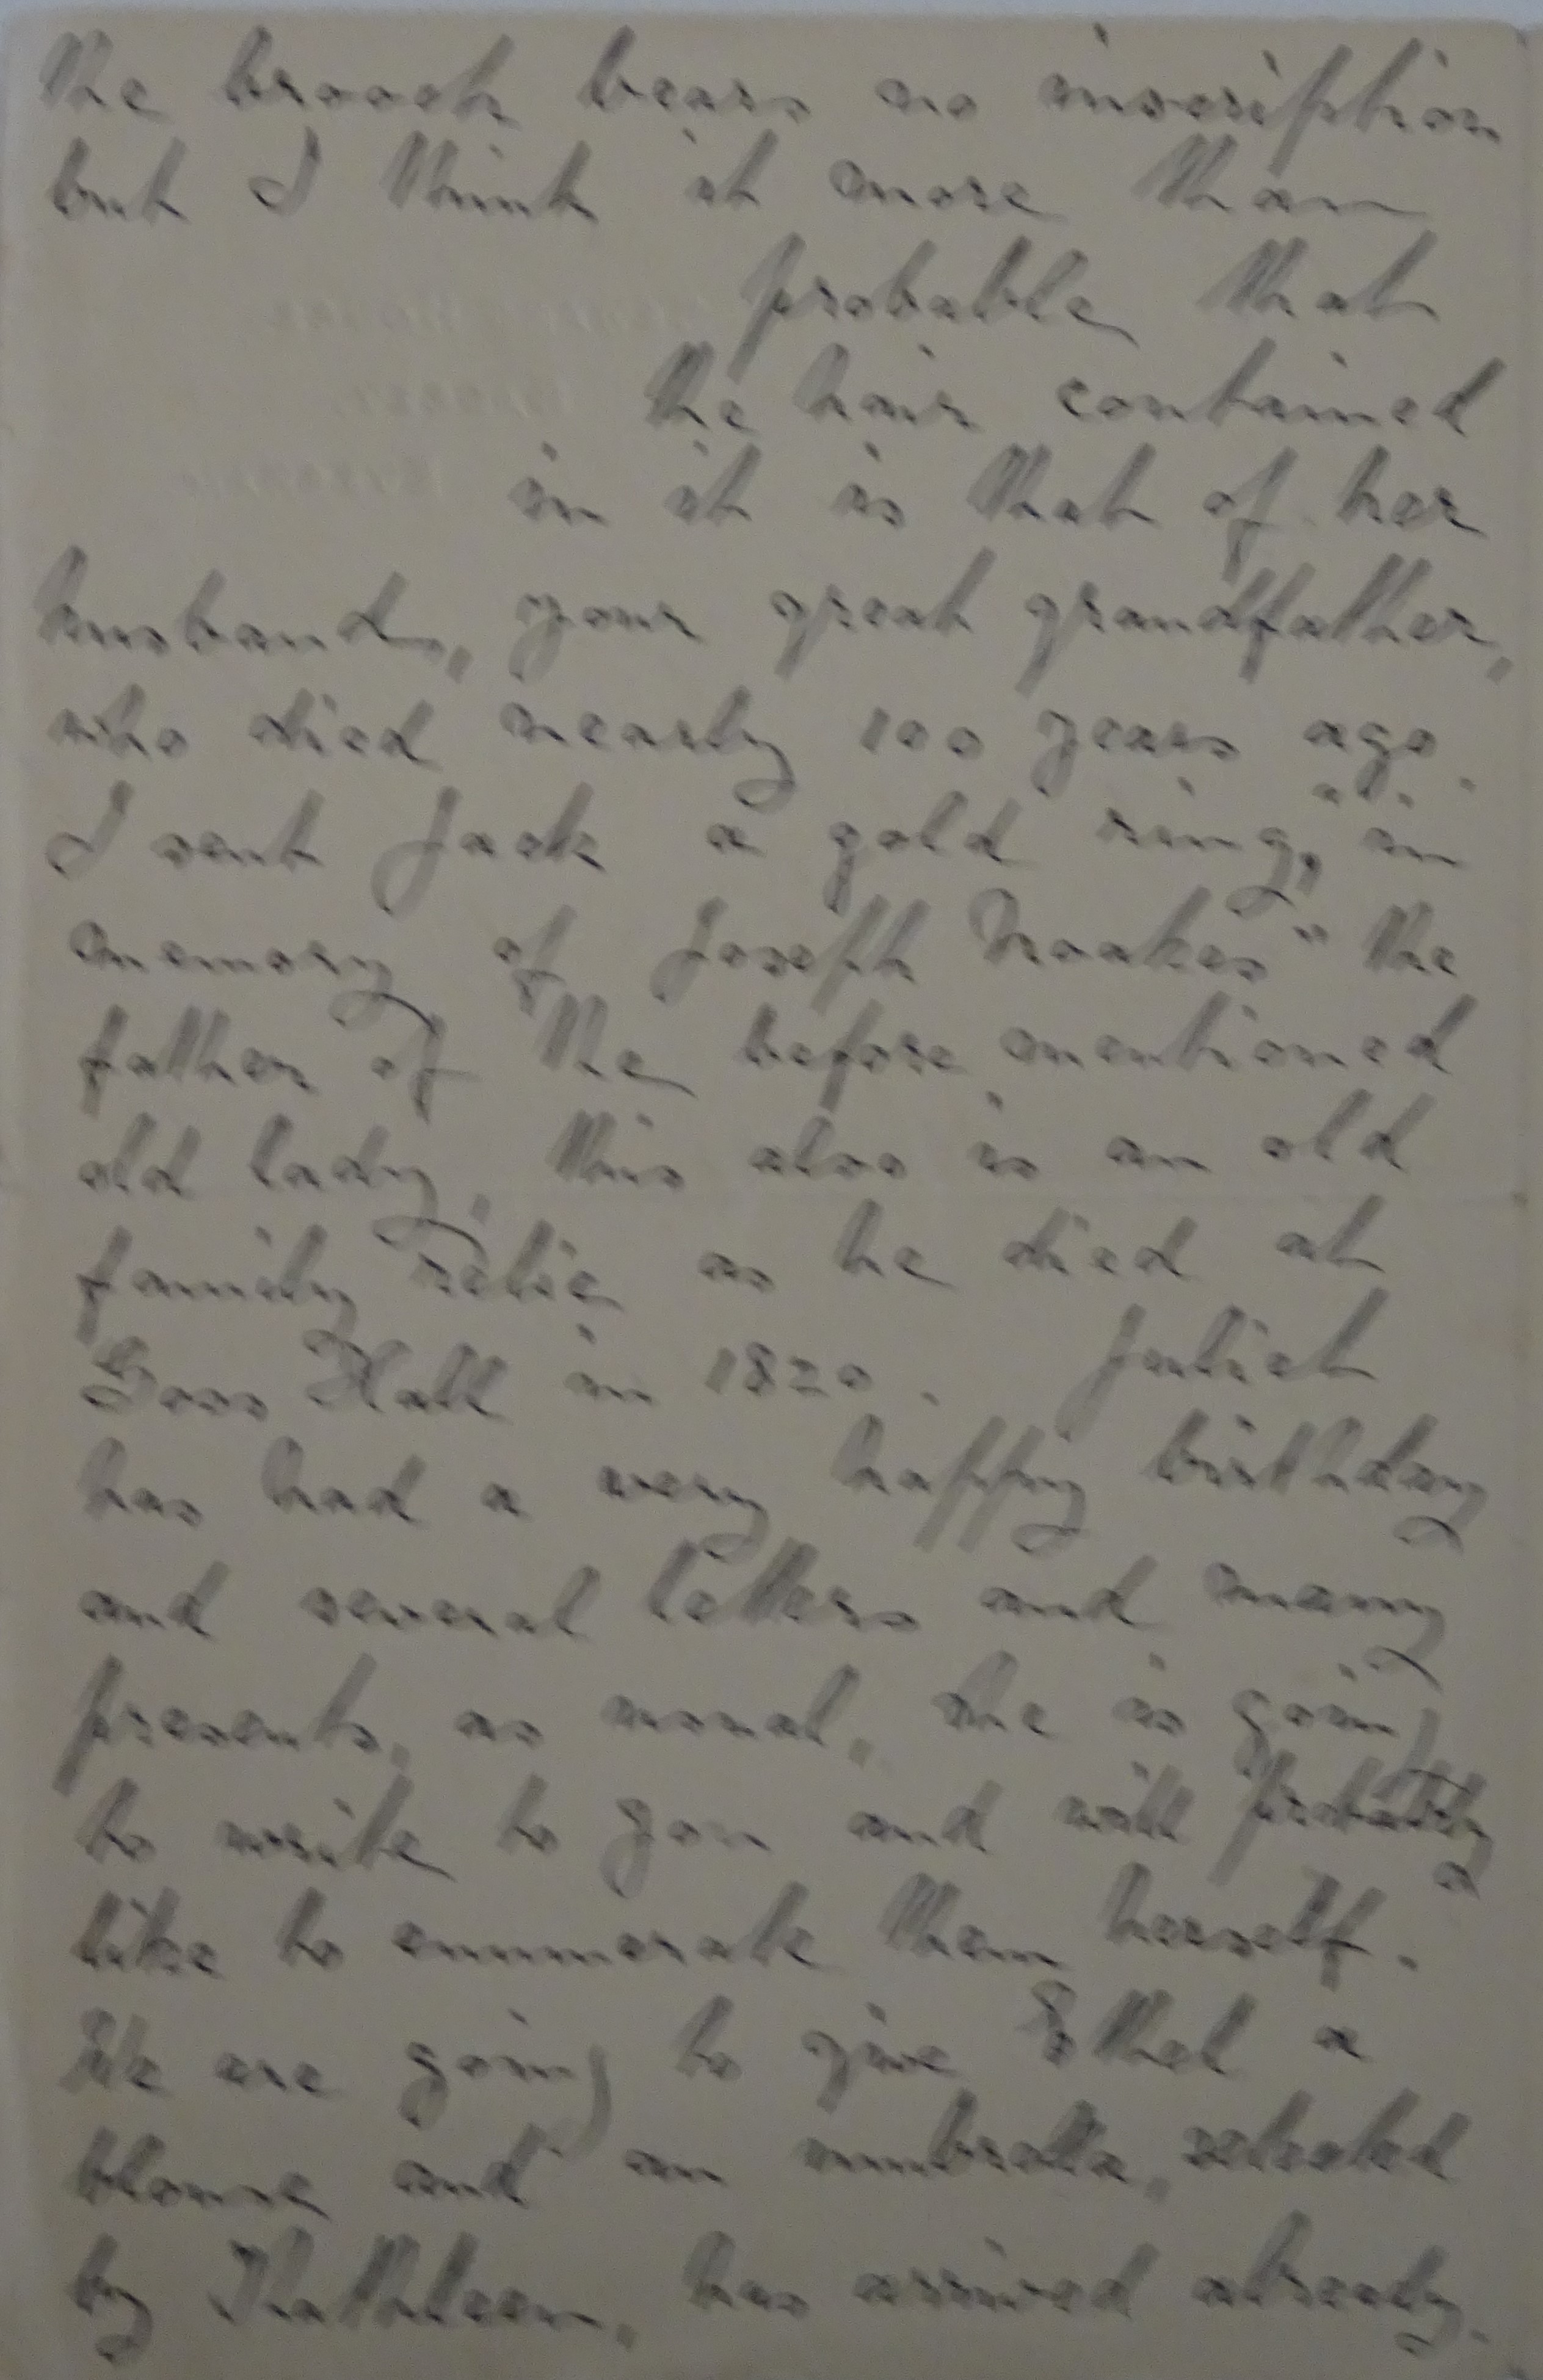 the brooch bears no inscription
but I think it more than
probable that
the hair contained
in it is that of her
husband, your great grandfather,
who died nearly 100 years ago.
I sent Jack a gold ring, "in
memory of Joseph Noakes" the
father of the before mentioned
old lady, this also is an old
family relic as he died at
Goss Hall in 1820. Juliet
has had a very happy birthday
and several letters and many
presents, as usual, she is going
to write to you and will probably
like to enumerate them herself.
We are going to give Ethel a
blouse and an umbrella, selected
by Kathleen, has arrived already.